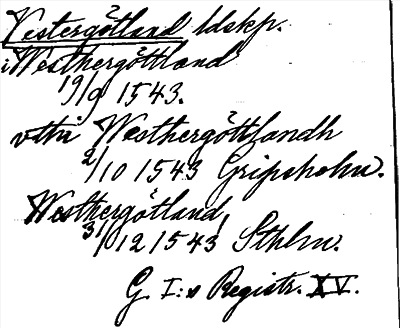 Vestergötland ldskp.
i Westhergöttland
19/9 1543.
vthi Westhergöttlandh
2/10 1543 Gripsholm.
Westhergötland,
31/12 1543 Sthlm.
G. I:s Registr. XV.